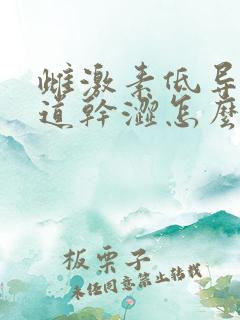 雌激素低导
道幹澀怎麽
板栗子
未经同意禁止转载